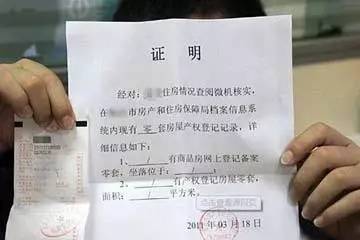 证 明
经对:住房情况查阅微机核实,
在市房产和住房保障局档案信息系
统内现有 零 套房屋产权登记记录,详
细信息如下:
1、 / 有商品房网上登记备案
零套,坐落位于: /
2、 / 有产权登记房屋零套,
面积: / 平方米。
点击查看源网页
2011 年 03 月 18 日